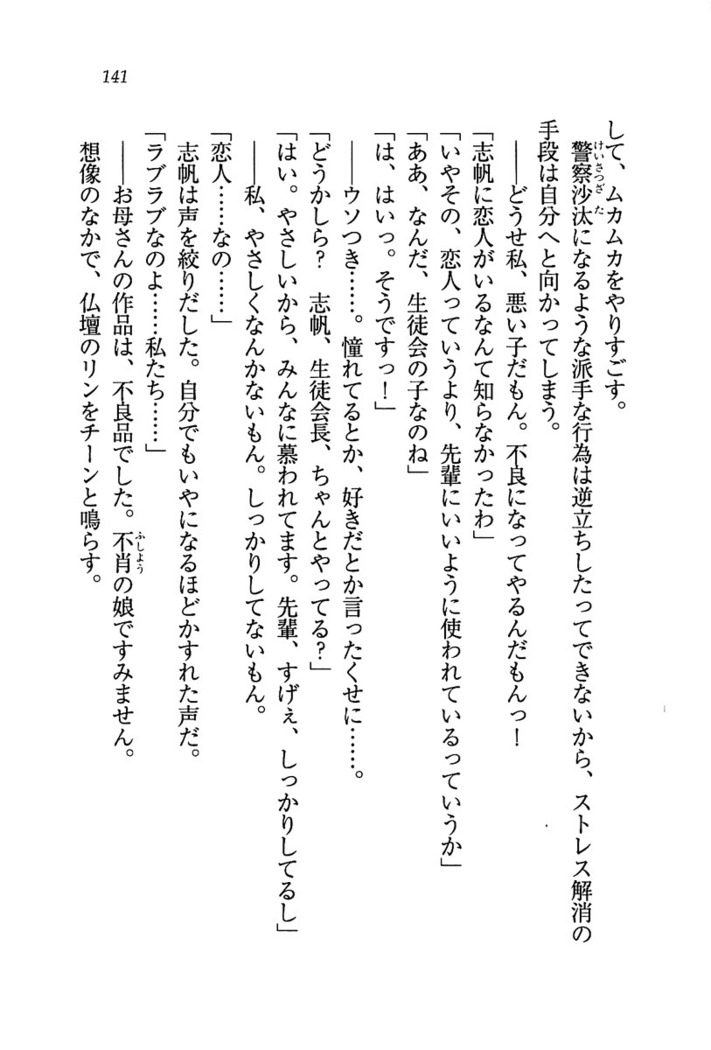 141
して、ムカムカをやりすごす。
警察沙汰になるような派手な行為は逆立ちしたってできないから、ストレス解消の
手段は自分へと向かってしまう。
――どうせ私、悪い子だもん。不良になってやるんだもんっ！
「志帆に恋人がいるなんて知らなかったわ」
「いやその、恋人っていうより、先輩にいいように使われているっていうか」
「ああ、なんだ、生徒会の子なのね」
「は、はいっ。そうですっ！」
――ウソつき……。憧れてるとか、好きだとか言ったくせに……。
「どうかしら？　志帆、生徒会長、ちゃんとやってる？」
「はい。やさしいから、みんなに慕われてます。先輩、すげぇ、しっかりしてるし」
――私、やさしくなんかないもん。しっかりしてないもん。
「恋人……なの……」
志帆は声を絞りだした。自分でもいやになるほどかすれた声だ。
「ラブラブなのよ……私たち……」
――お母さんの作品は、不良品でした。不肖の娘ですみません。
想像のなかで、仏壇のリンをチーンと鳴らす。